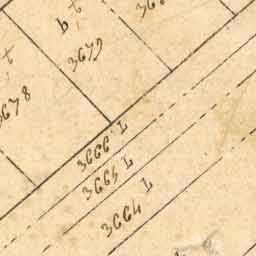 b t
3679
t
3678
3666 L
3665 L
3664 L